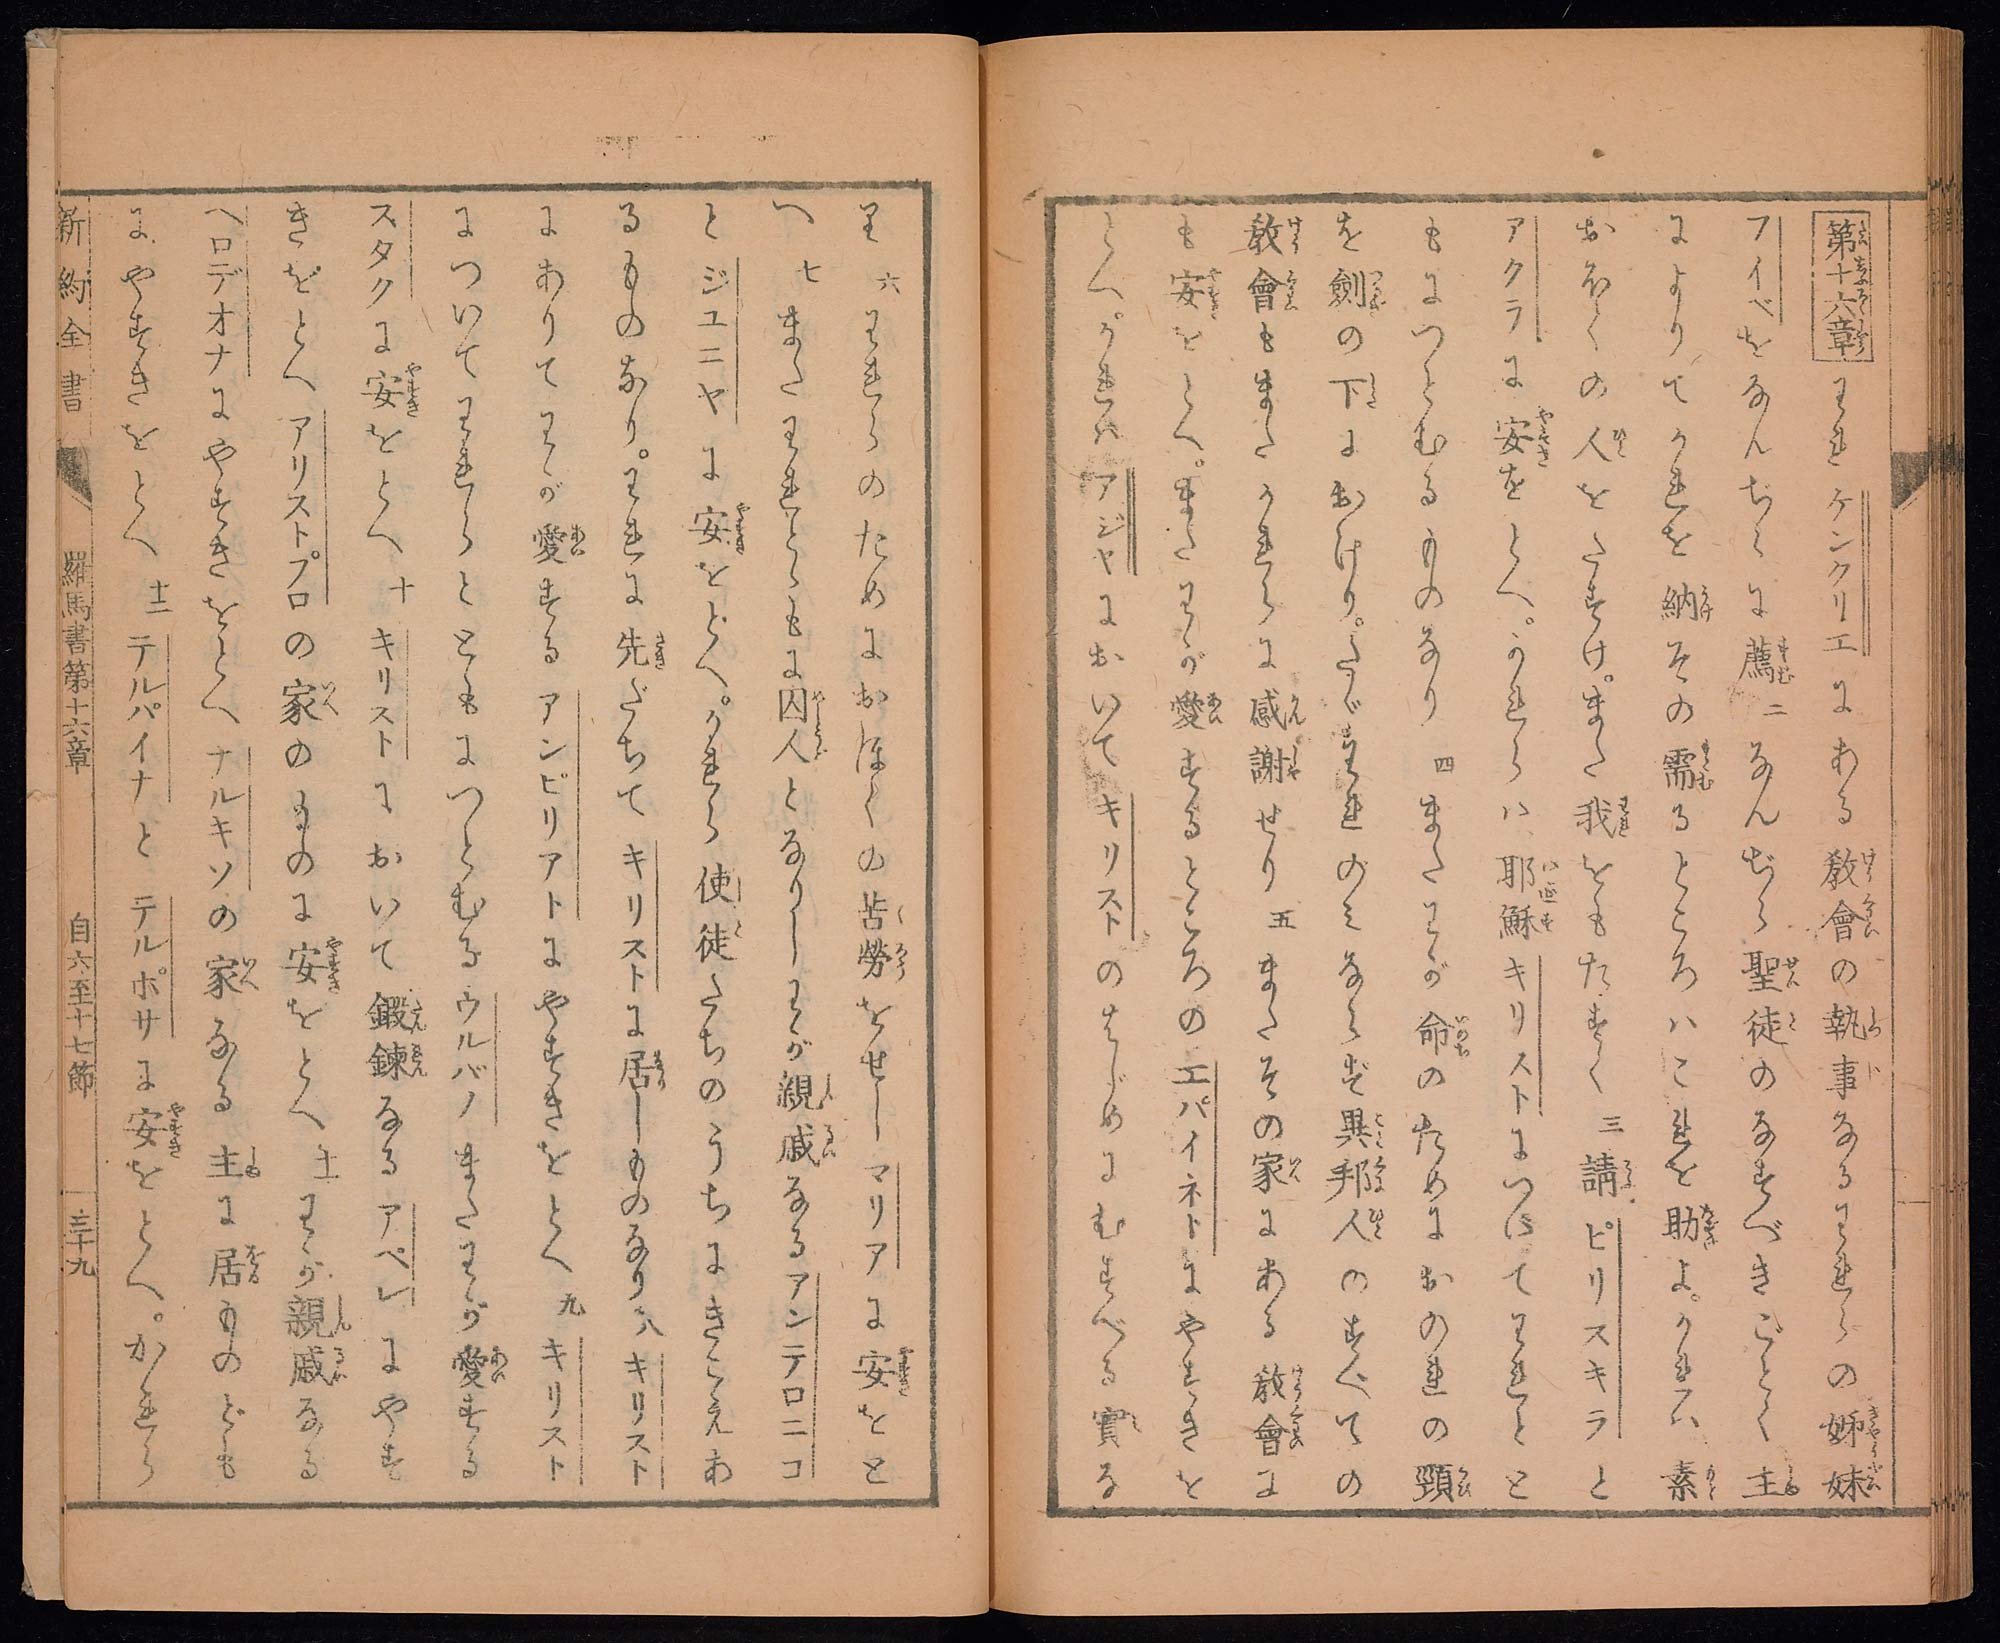 第十六章 われケンクリエにある教會の執事なるわれらの姊妹
フイベをなんぢらに薦 二 なんぢら聖徒のなすべきごとく主
によりてかれを納その需るところハこれを助よ。かれハ素
おほくの人をたすけ。また我をもたすく 三 請ピリスキラと
アクラに安をとへ。かれらハ耶穌キリストにつけてわれとと
もにつとむるものなり 四 またわが命のためにおのれの頸
を劍の下におけり。たゞわれのみならず異邦人のすべての
教會もまたかれらに感謝せり 五 またその家にある教會に
も安をとへ。またわが愛するところのエパイネトにやすきを
とへ。かれハアジヤにおいてキリストのはじめにむすべる實な
り 六 われらのためにおほくの苦勞をせしマリアに安をと
へ 七 またわれとゝもに囚人となりしわが親戚なるアンデロニコ
とジユニヤに安をとへ。かれら使徒たちのうちにきこえあ
るものなり。われに先だちてキリストに居しものなり 八 キリスト
にありてわが愛するアンピリアトにやすきをとへ 九 キリスト
についてわれらとともにつとむるウルバノまたわが愛する
スタクに安をとへ 十 キリストにおいて鍛鍊なるアペレにやす
きをとへアリストプロの家のものに安をとへ 十一 わが親戚なる
ヘロデオナにやすきをとへナルキソの家なる主に居ものども
にやすきをとへ 十二 テルパイナとテルポサに安をとへ。かれら
新約全書 羅馬書第十六章 自六至十七節 三十九